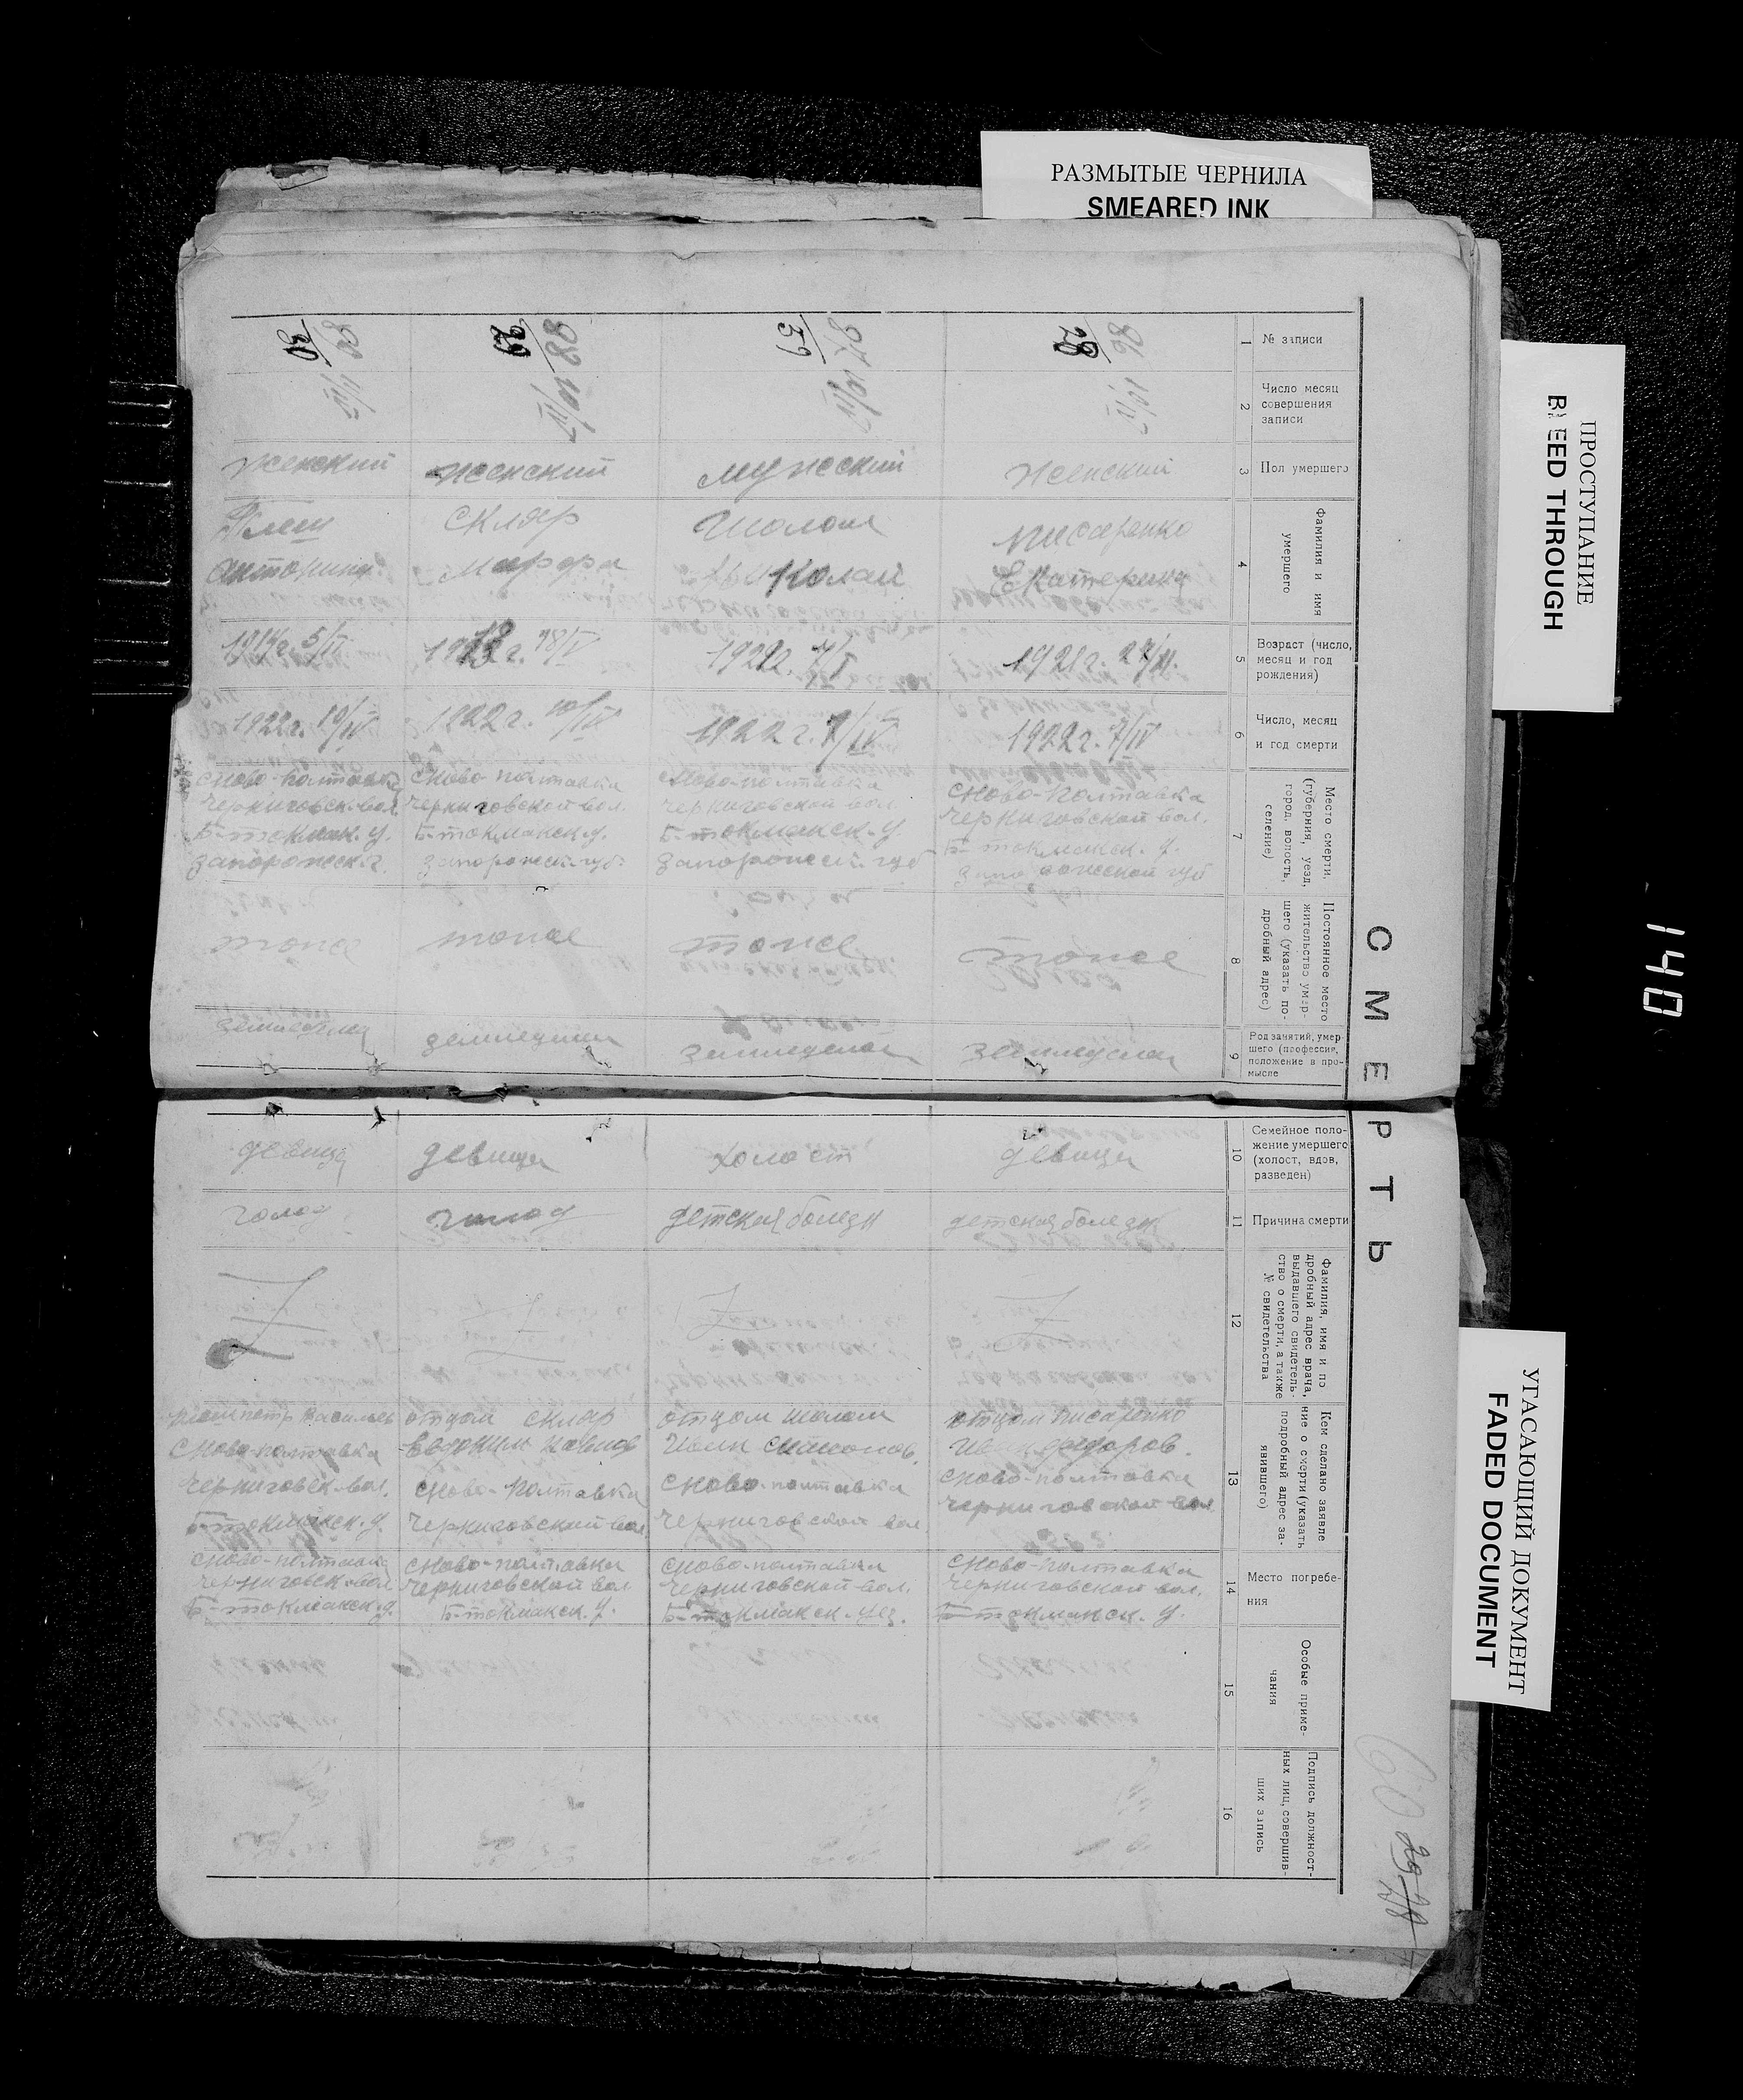 РАЗМЫТЫЕ ЧЕРНИЛА
SMEARED INK
ПРОСТУПАНИЕ
BLEED THROUGH
УГАСАЮЩИЙ ДОКУМЕНТ
FADED DOCUMENT
140
СМЕРТЬ
1
№ записи
86
28
87
37
88
29
89
30
2
Число месяц
совершения
записи
3
Пол умершего
Женский
мужеский
женский
Женский
4
Фамилия и имя
умершего
Писаренко
Екатерина
Шолом
Николай
Скляр
Антонина
5
Возраст (число,
месяц и год
рождения)
1921г. 27/
192 г. 7/I
19 г. 18/V
1914г. 5/IV
6
Число, месяц
и год смерти
1922г. 7/IV
1922г. 7/IV
1922г. 10/IV
1922г. 10/IV
7
Место смерти,
(губерния, уезд,
город, волость,
селение)
Ново-Полтавка
Черниговской вол.
Б-Токмакск. у.
Запорожской губ
Ново-Полтавка
Черниговской вол
Б-Токмакск. у.
Запорожск. губ
Ново Полтавка
Черниговской вол.
Б-Токмакск. у.
Запорожск. губ
Ново-Полтавка
Черниговск. вол.
Б-Токмак. у.
Запорожск. г.
8
Постоянное место
жительство умер-
шего (указать по-
дробный адрес)
тоже
тоже
тоже
тоже
9
Род занятий, умер-
шего (профессия,
положение в про-
мысле
10
Семейное поло-
жение умершего
(холост, вдов,
разведен)
девица
холост
девица
девица
11
Причина смерти
детская болезн
детская болезн
голод
голод
12
Фамилия, имя и по
дробный адрес врача,
выдавшего свидетель-
ство о смерти, а также
№ свидетельства
13
Кем сделано заявле
ние о смерти (указать
подробный адрес за-
явившего)
отцом Писаренко
Иван Федоров.
Ново-Полтавка
Черниговской вол
отцом Шолом
Ново-Полтавка
Черниговской вол.
отцом Скляр
Ново-Полтавка
Черниговский вол.
Петр Васильев
Ново-Полтавка
Черниговск. вол.
Б-Токмакск. у.
14
Место погребе-
ния
Ново-Полтавка
Черниговской вол.
Б-Токмакск. у.
Ново-Полтавка
Черниговской вол.
Б-Токмакск. уез.
Ново-Полтавка
Черниговской вол
Б-Токмакск. у.
Ново-Полтавка
Черниговск. вол
Б-Токмакск. у.
15
Особые приме-
чания
16
Подпись должност-
ных лиц, совершив-
ших запись
60